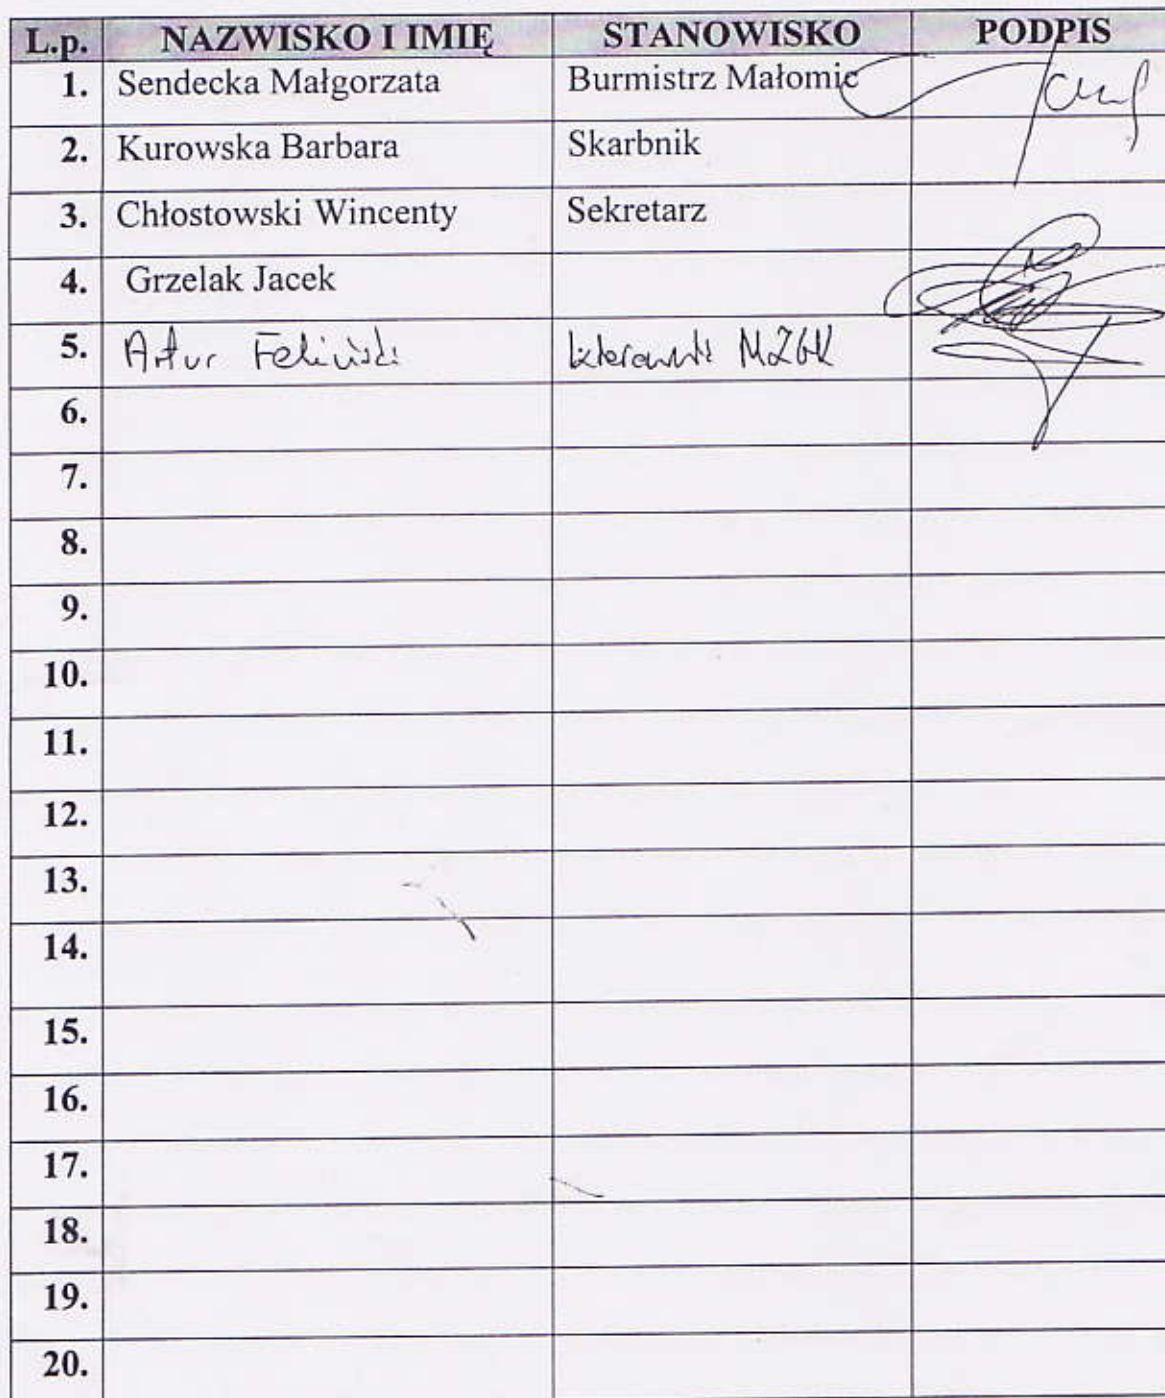 L.p. NAZWISKO I IMIĘ STANOWISKO PODPIS
1. Sendecka Małgorzata Burmistrz Małomic
2. Kurowska Barbara Skarbnik
3. Chłostowski Wincenty Sekretarz
4. Grzelak Jacek
5. Artur Feliński kierownik MZGK
6.
7.
8.
9.
10.
11.
12.
13.
14.
15.
16.
17.
18.
19.
20.